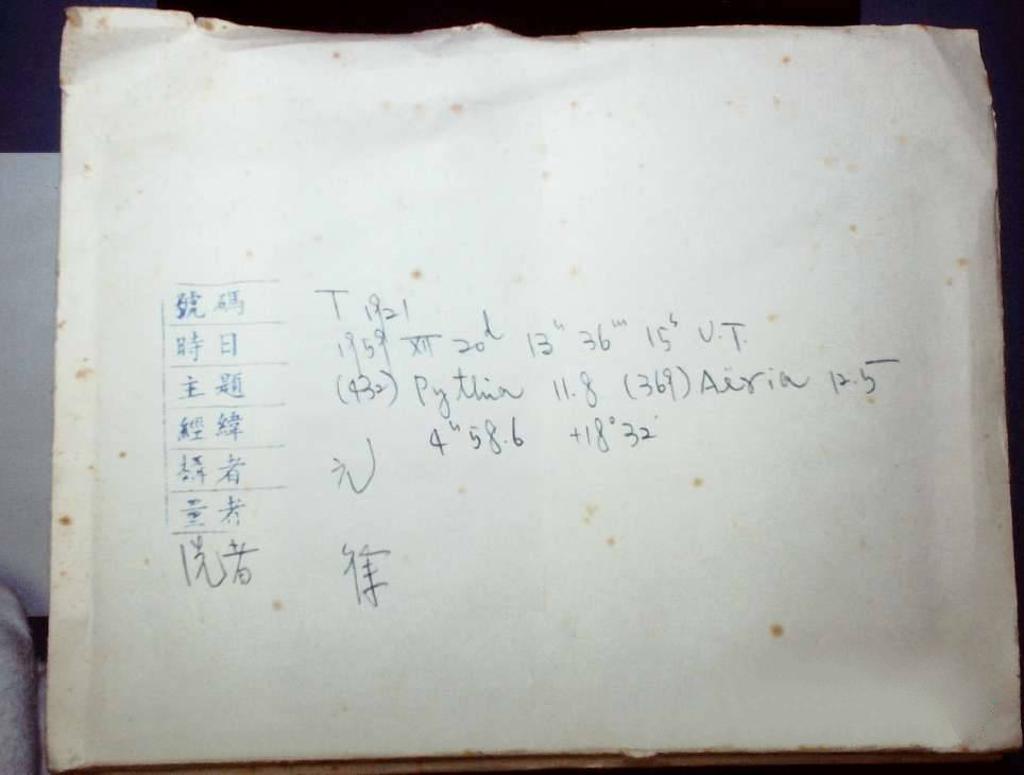 號碼 T 1921
時日 1959 XII 20d 13h 36m 15s U.T.
主題 (432) Pythia 11.8 (369) Aëria 12.5
經緯 4h 58.6 +18°32'
攝者 元
量者
洗者 徐